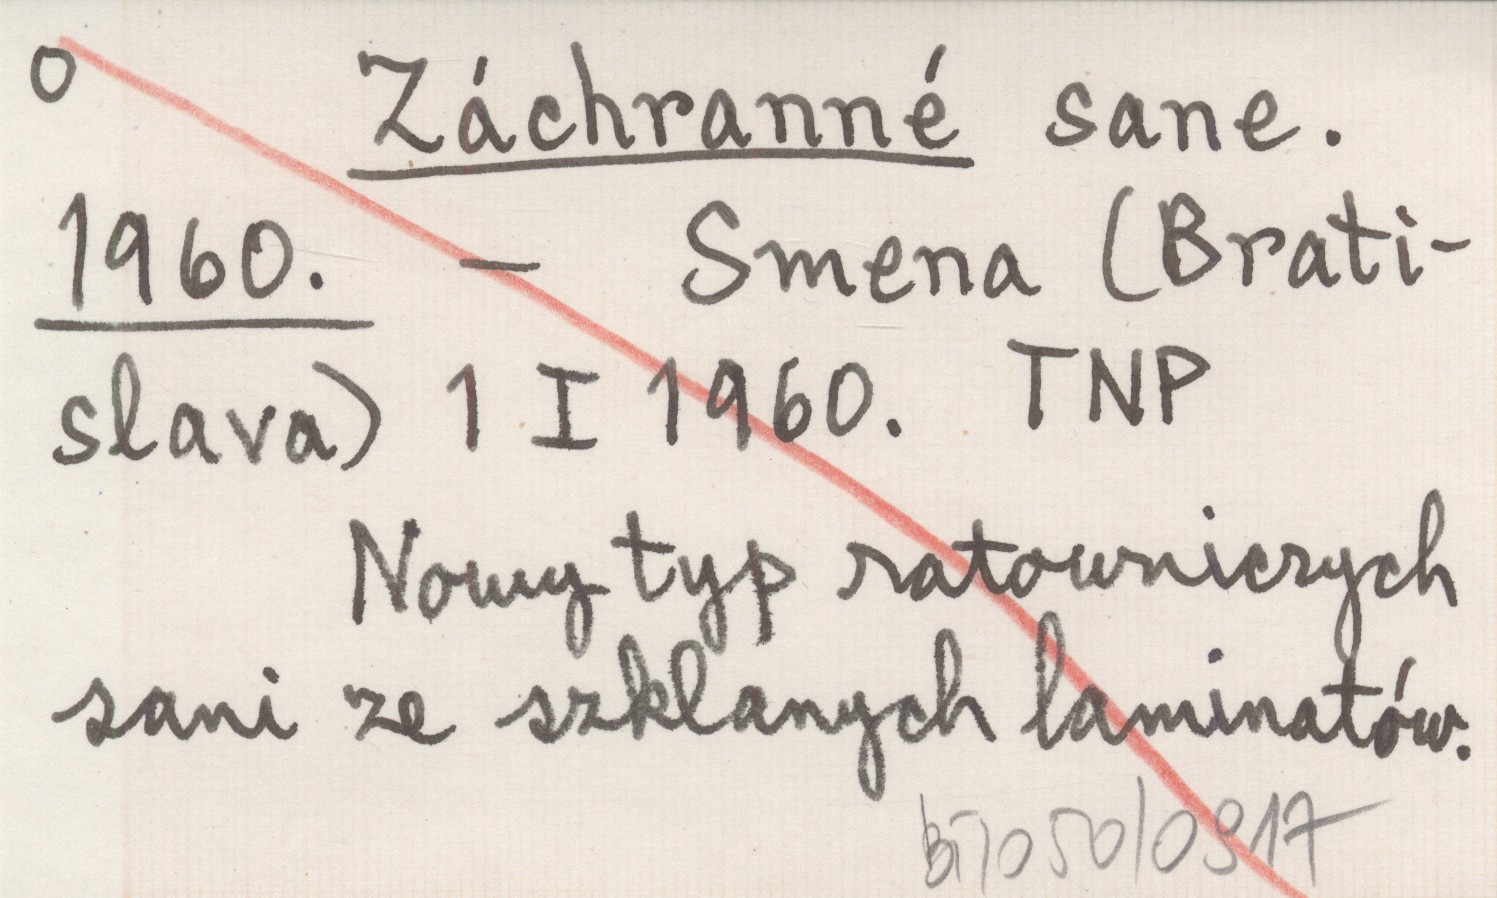 o Záchranné sane.
1960. – Smena (Brati-
slava) 1 I 1960. TNP
Nowy typ ratowniczych
sani ze szklanych laminatów.